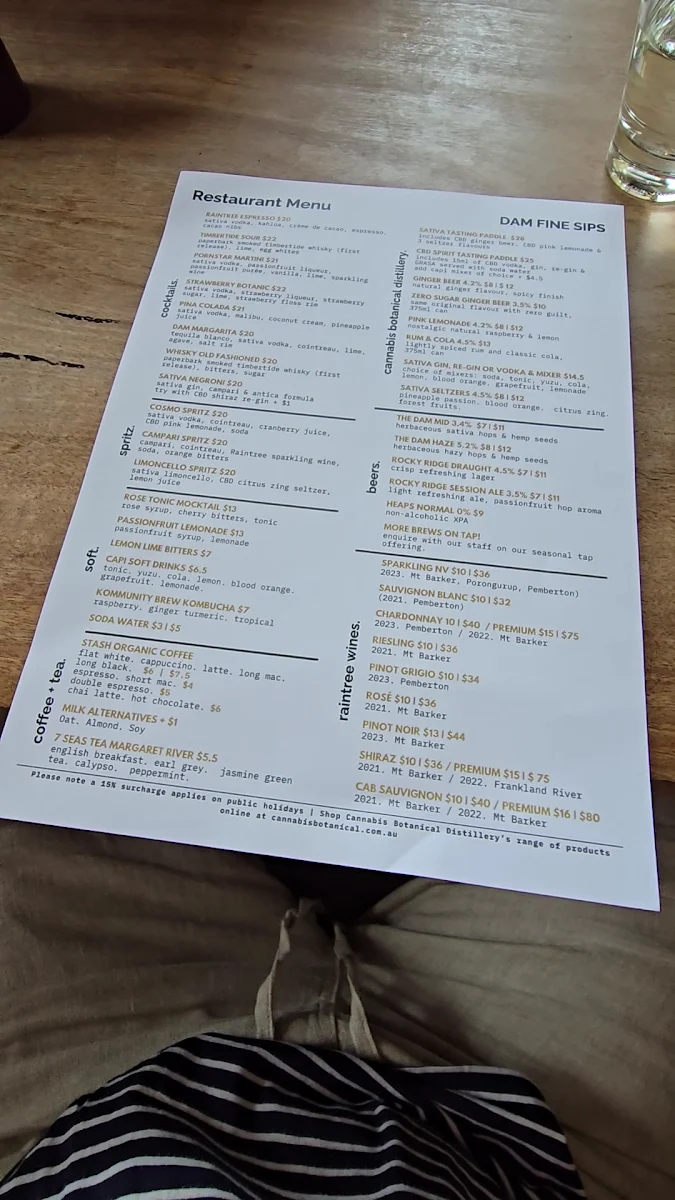 Restaurant Menu
DAM FINE SIPS
cocktails.
RAINTREE ESPRESSO $20
sativa vodka, kahlua, crème de cacao, espresso,
cacao nibs
TIMBERTIDE SOUR $22
paperbark smoked timbertide whisky (first
release), lime, egg whites
PORNSTAR MARTINI $21
sativa vodka, passionfruit liqueur,
passionfruit purée, vanilla, lime, sparkling
wine
STRAWBERRY BOTANIC $22
sativa vodka, strawberry liqueur, strawberry
sugar, lime, strawberry floss rim
PINA COLADA $21
sativa vodka, malibu, coconut cream, pineapple
juice
DAM MARGARITA $20
tequila blanco, sativa vodka, cointreau, lime,
agave, salt rim
WHISKY OLD FASHIONED $20
paperbark smoked timbertide whisky (first
release), bitters, sugar
SATIVA NEGRONI $20
sativa gin, campari & antica formula
try with CBD shiraz re-gin + $1
spritz.
COSMO SPRITZ $20
sativa vodka, cointreau, cranberry juice,
CBD pink lemonade, soda
CAMPARI SPRITZ $20
campari, cointreau, Raintree sparkling wine,
soda, orange bitters
LIMONCELLO SPRITZ $20
sativa limoncello, CBD citrus zing seltzer,
lemon juice
soft.
ROSE TONIC MOCKTAIL $13
rose syrup, cherry bitters, tonic
PASSIONFRUIT LEMONADE $13
passionfruit syrup, lemonade
LEMON LIME BITTERS $7
CAPI SOFT DRINKS $6.5
tonic. yuzu. cola. lemon. blood orange.
grapefruit. lemonade.
KOMMUNITY BREW KOMBUCHA $7
raspberry. ginger turmeric. tropical
SODA WATER $3 | $5
coffee + tea.
STASH ORGANIC COFFEE
flat white. cappuccino. latte. long mac.
long black. $6 | $7.5
espresso. short mac. $4
double espresso. $5
chai latte. hot chocolate. $6
MILK ALTERNATIVES + $1
Oat. Almond. Soy
7 SEAS TEA MARGARET RIVER $5.5
english breakfast. earl grey. jasmine green
tea. calypso. peppermint.
cannabis botanical distillery.
SATIVA TASTING PADDLE $26
includes CBD ginger beer, CBD pink lemonade &
3 seltzer flavours
CBD SPIRIT TASTING PADDLE $25
includes 15ml of CBD vodka, gin, re-gin &
GRASA served with soda water
add capi mixer of choice + $4.5
GINGER BEER 4.2% $8 | $12
natural ginger flavour, spicy finish
ZERO SUGAR GINGER BEER 3.5% $10
same original flavour with zero guilt,
375ml can
PINK LEMONADE 4.2% $8 | $12
nostalgic natural raspberry & lemon
RUM & COLA 4.5% $13
lightly spiced rum and classic cola,
375ml can
SATIVA GIN, RE-GIN OR VODKA & MIXER $14.5
choice of mixers: soda, tonic, yuzu, cola,
lemon, blood orange, grapefruit, lemonade
SATIVA SELTZERS 4.5% $8 | $12
pineapple passion. blood orange. citrus zing.
forest fruits.
beers.
THE DAM MID 3.4% $7 | $11
herbaceous sativa hops & hemp seeds
THE DAM HAZE 5.2% $8 | $12
herbaceous hazy hops & hemp seeds
ROCKY RIDGE DRAUGHT 4.5% $7 | $11
crisp refreshing lager
ROCKY RIDGE SESSION ALE 3.5% $7 | $11
light refreshing ale, passionfruit hop aroma
HEAPS NORMAL 0% $9
non-alcoholic XPA
MORE BREWS ON TAP!
enquire with our staff on our seasonal tap
offering.
raintree wines.
SPARKLING NV $10 | $36
2023. Mt Barker, Porongurup, Pemberton)
SAUVIGNON BLANC $10 | $32
(2021. Pemberton)
CHARDONNAY 10 | $40 / PREMIUM $15 | $75
2023. Pemberton / 2022. Mt Barker
RIESLING $10 | $36
2021. Mt Barker
PINOT GRIGIO $10 | $34
2023. Pemberton
ROSÉ $10 | $36
2021. Mt Barker
PINOT NOIR $13 | $44
2023. Mt Barker
SHIRAZ $10 | $36 / PREMIUM $15 | $ 75
2021. Mt Barker / 2022. Frankland River
CAB SAUVIGNON $10 | $40 / PREMIUM $16 | $80
2021. Mt Barker / 2022. Mt Barker
Please note a 15% surcharge applies on public holidays | Shop Cannabis Botanical Distillery's range of products
online at cannabisbotanical.com.au